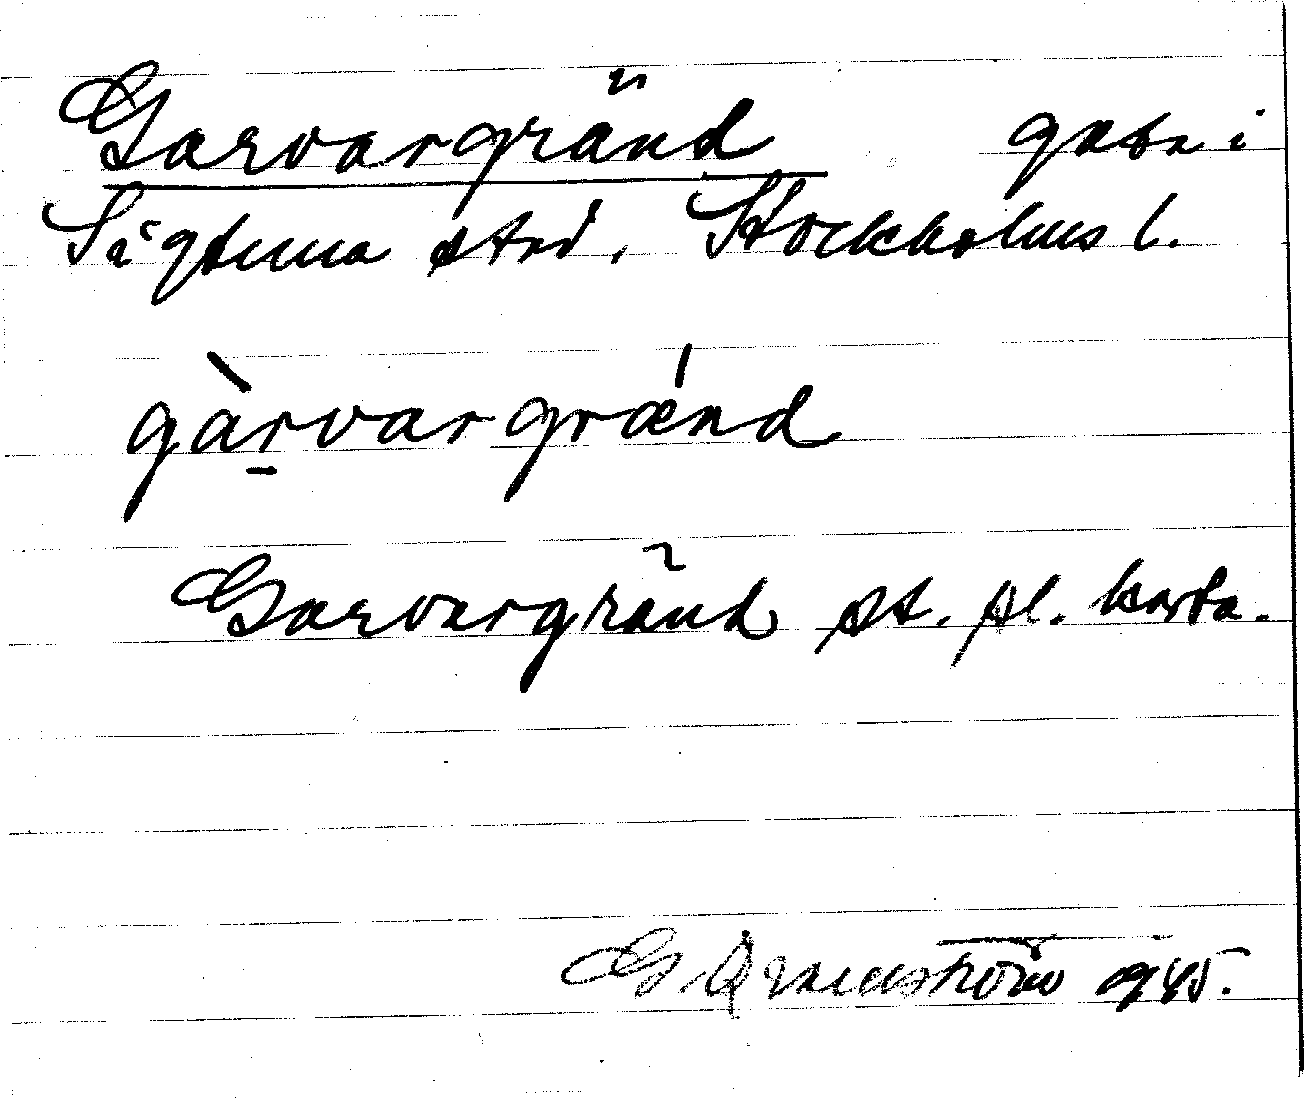 Garvargränd gata i
Sigtuna stad, Stockholms l.
gàrvargrǽnd
Garvargränd st. pl. karta.
G 945.